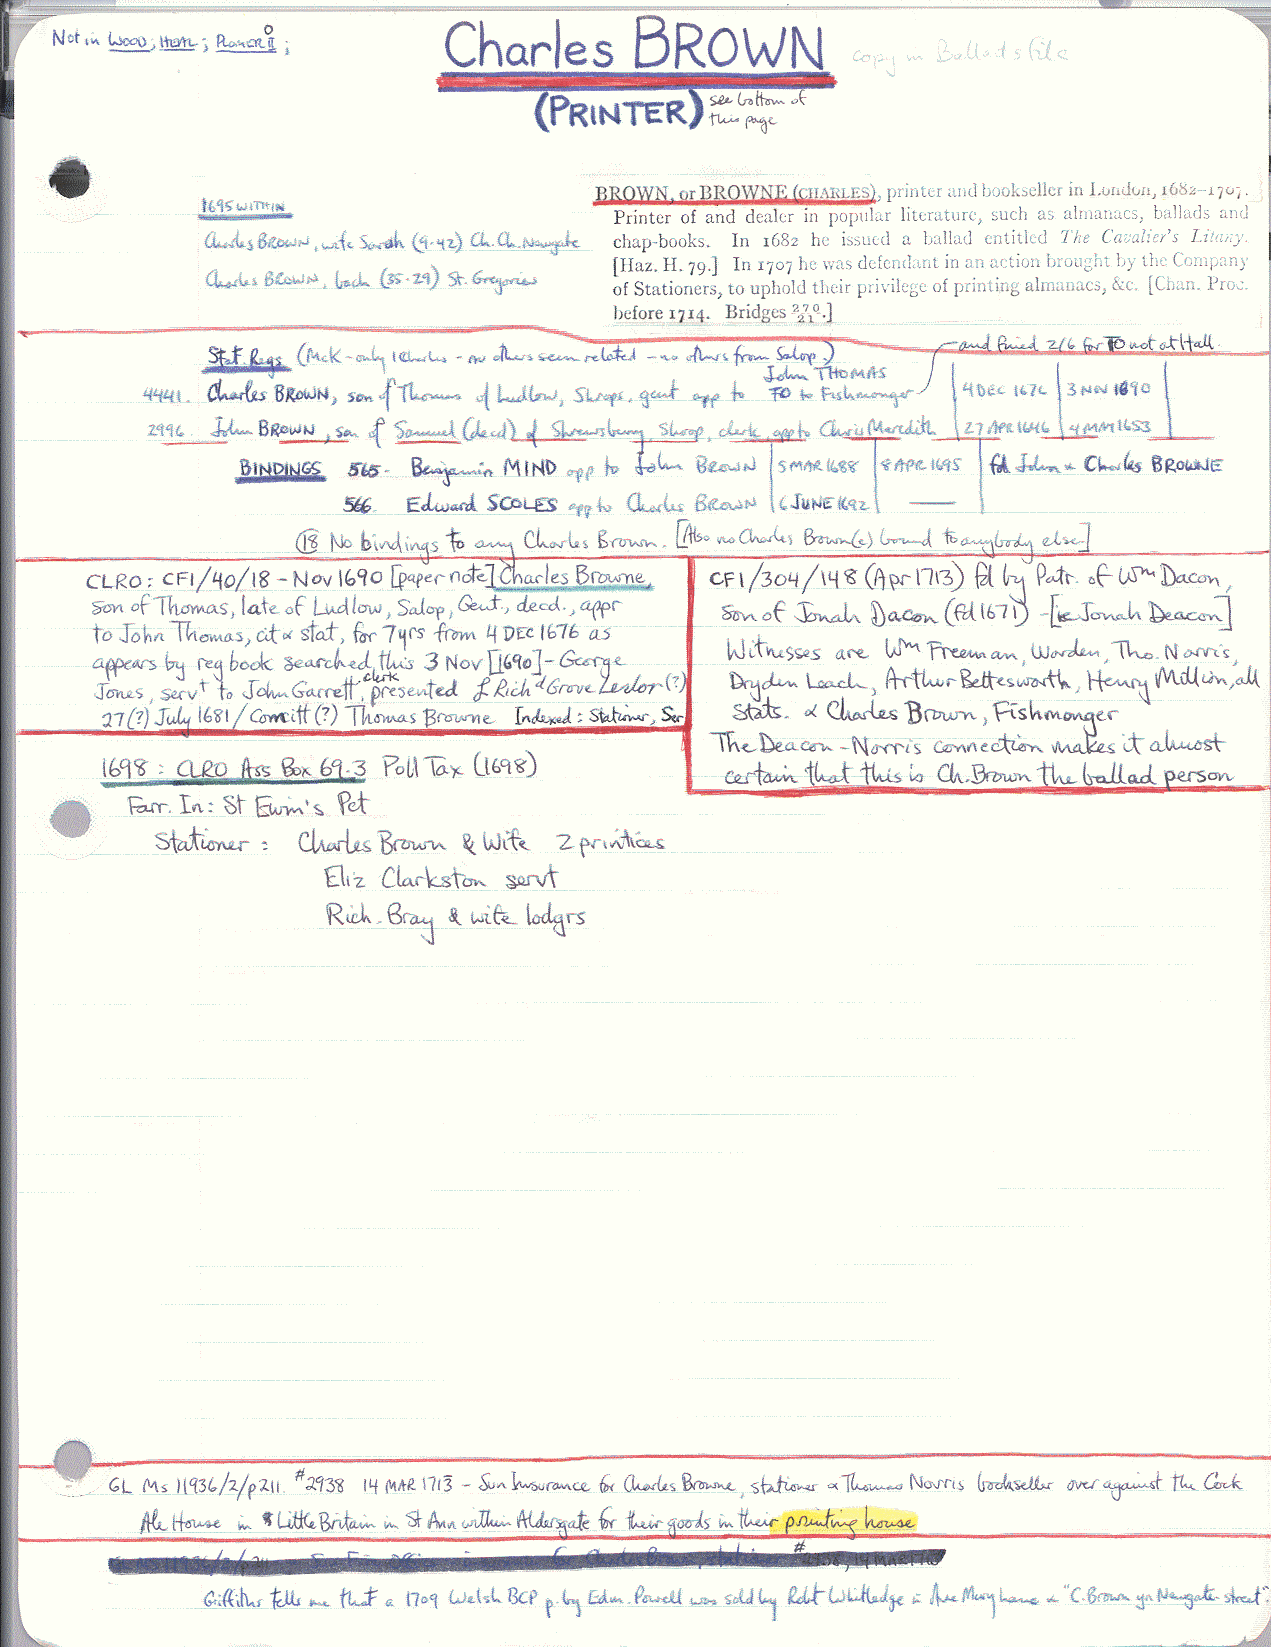 Not in WOOD; HEAL; PLOMER II;
Charles BROWN
copy in Ballads file
(PRINTER) see bottom of
this page
1695 WITHIN
Charles BROWN, wife Sarah (9.42) Ch. Ch. Newgate
Charles BROWN, bach (35.29) St. Gregories
BROWN, or BROWNE (CHARLES), printer and bookseller in London, 1682–1707.
Printer of and dealer in popular literature, such as almanacs, ballads and
chap-books. In 1682 he issued a ballad entitled The Cavalier's Litany.
[Haz. H. 79.] In 1707 he was defendant in an action brought by the Company
of Stationers, to uphold their privilege of printing almanacs, &c. [Chan. Proc.
before 1714. Bridges 270/21.]
Stat. Regs (McK - only 1 Charles - no others seem related - no others from Salop.)
and fined 2/6 for TO not at Hall.
John THOMAS
4441. Charles BROWN, son of Thomas of Ludlow, Shrops, gent app to TO to Fishmonger 4 DEC 1676 3 NOV 1690
2996. John BROWN, son of Samuel (decd) of Shrewsbury, Shrop, clerk, app to Chris Meredith 27 APR 1646 4 MAY 1653
BINDINGS 565. Benjamin MIND app to John BROWN 5 MAR 1688 8 APR 1695 fd John & Charles BROWNE
566. Edward SCOLES app to Charles BROWN 6 JUNE 1692 —
18 No bindings to any Charles Brown. [Also no Charles Brown(e) bound to anybody else]
CLRO: CF1/40/18 - Nov 1690 [paper note] Charles Browne,
son of Thomas, late of Ludlow, Salop, Gent., decd., appr
to John Thomas, cit & stat, for 7 yrs from 4 DEC 1676 as
appears by reg book searched this 3 Nov [1690] - George
Jones, servt to John Garrett, clerk, presented & Richd Grove Lestor (?)
27(?) July 1681 / Comitt (?) Thomas Browne Indexed: Stationer, Ser
CF1/304/148 (Apr 1713) fd by Patr. of Wm Dacon,
son of Jonah Dacon (fd 1671) - [ie Jonah Deacon]
Witnesses are Wm Freeman, Warden, Tho. Norris,
Dryden Leach, Arthur Bettesworth, Henry Million, all
Stats. & Charles Brown, Fishmonger
The Deacon-Norris connection makes it almost
certain that this is Ch. Brown the ballad person
1698: CLRO Ass Box 69.3 Poll Tax (1698)
Farr. In: St Ewin's Pct
Stationer: Charles Brown & Wife 2 printices
Eliz Clarkston servt
Rich. Bray & wife lodgrs
GL Ms 11936/2/p211. #2938 14 MAR 1713 - Sun Insurance for Charles Browne, stationer & Thomas Norris bookseller over against the Cock
Ale House in Little Britain in St Ann within Aldersgate for their goods in their printing house
Griffiths tells me that a 1709 Welsh BCP p. by Edm. Powell was sold by Robt Whitledge in Ave Mary lane & "C. Brown yn Newgate street".